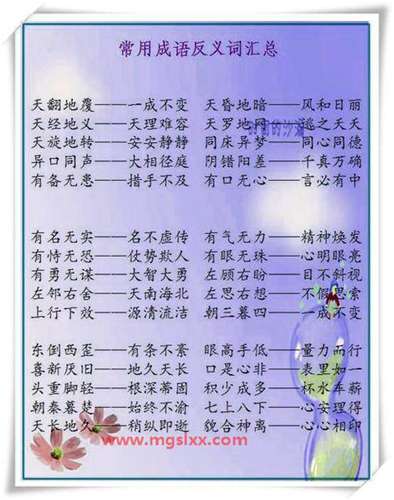 常用成语反义词汇总
天翻地覆——一成不变 天昏地暗——风和日丽
天经地义——天理难容 天罗地网——逃之夭夭
天旋地转——安安静静 同床异梦——同心同德
异口同声——大相径庭 阴错阳差——千真万确
有备无患——措手不及 有口无心——言必有中
有名无实——名不虚传 有气无力——精神焕发
有恃无恐——仗势欺人 有眼无珠——心明眼亮
有勇无谋——大智大勇 左顾右盼——目不斜视
左邻右舍——天南海北 左思右想——不假思索
上行下效——源清流洁 朝三暮四——一成不变
东倒西歪——有条不紊 眼高手低——量力而行
喜新厌旧——地久天长 口是心非——表里如一
头重脚轻——根深蒂固 积少成多——杯水车薪
朝秦暮楚——始终不渝 七上八下——心安理得
天长地久——稍纵即逝 貌合神离——心心相印
www.mgslxx.com